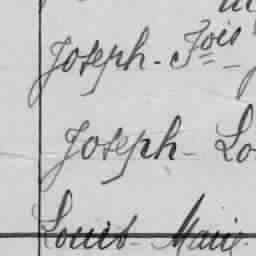 Joseph-Fois-
Joseph-Lo
Louis-Marie-